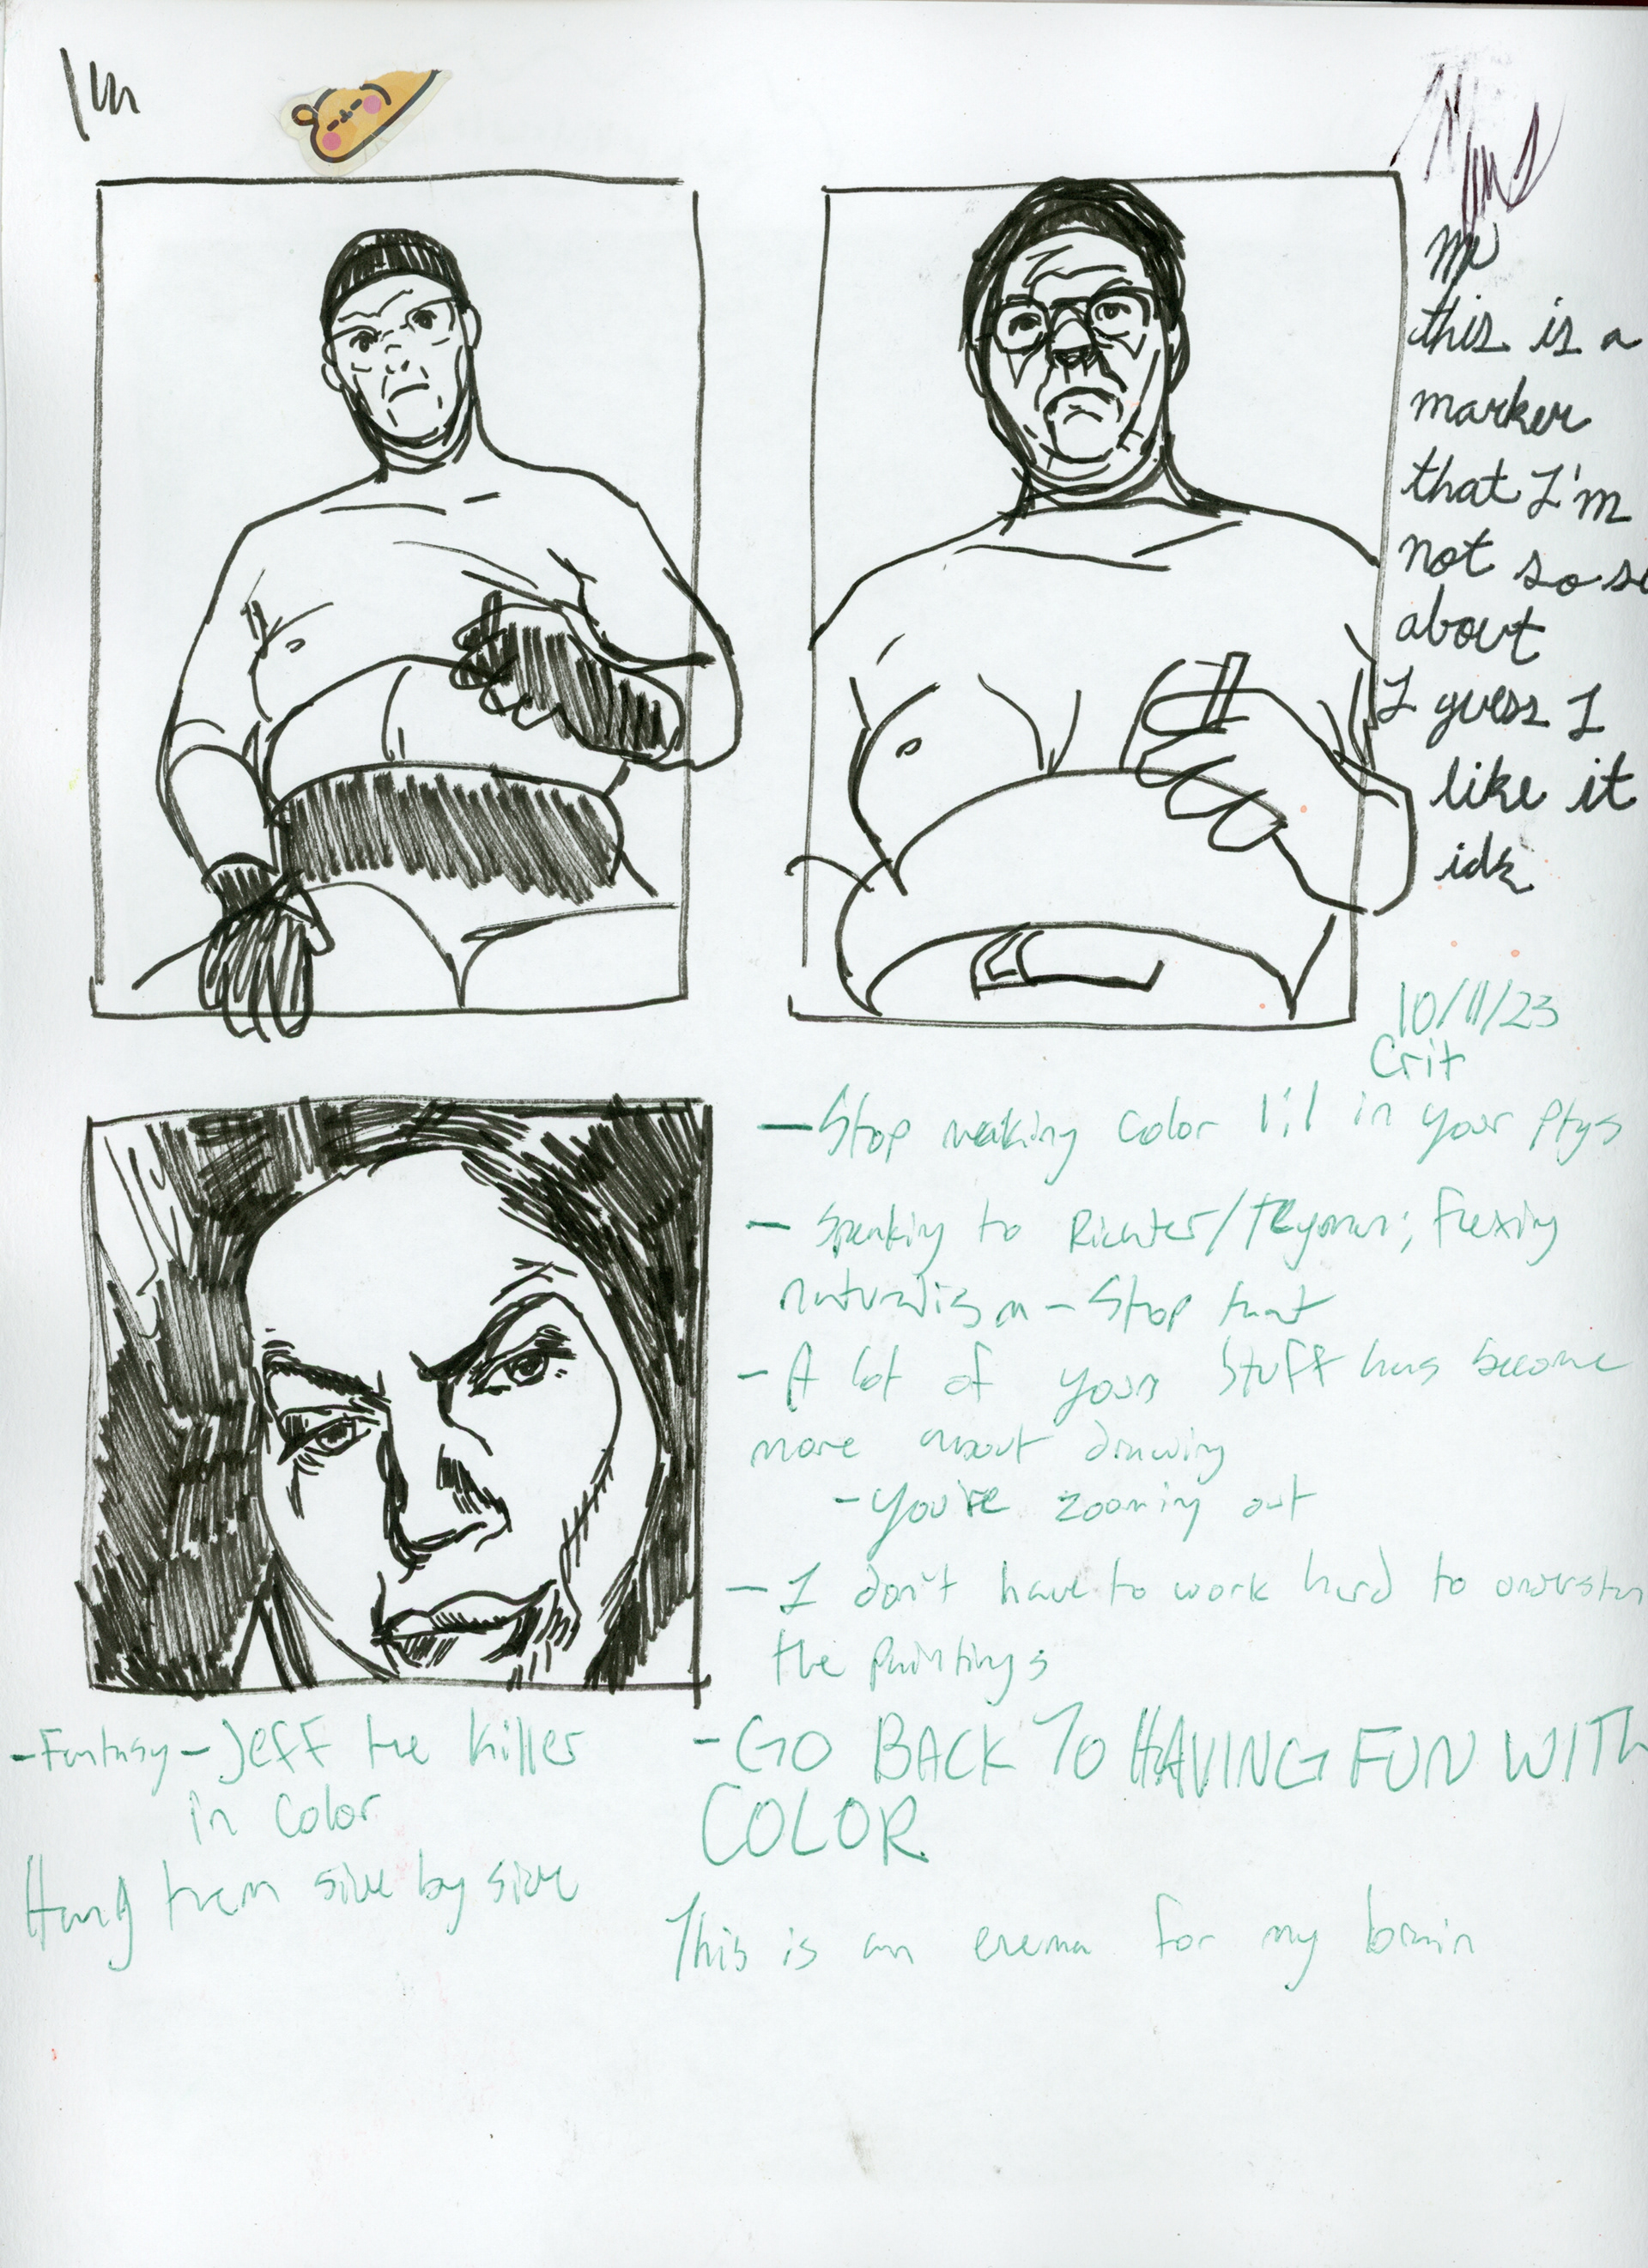 me
this is a
marker
that I'm
not so
about
I guess I
like it
idk
10/11/23
Crit
- Stop making color 1:1 in your ptgs
- Speaking to Richter/ ; flexing
naturalism - Stop that
- A lot of your stuff has become
more about drawing
- you're zooming out
- I don't have to work hard to
the paintings
- GO BACK TO HAVING FUN WITH
COLOR
This is an enema for my brain
- Fantasy - Jeff the Killer
in color
Hang them side by side